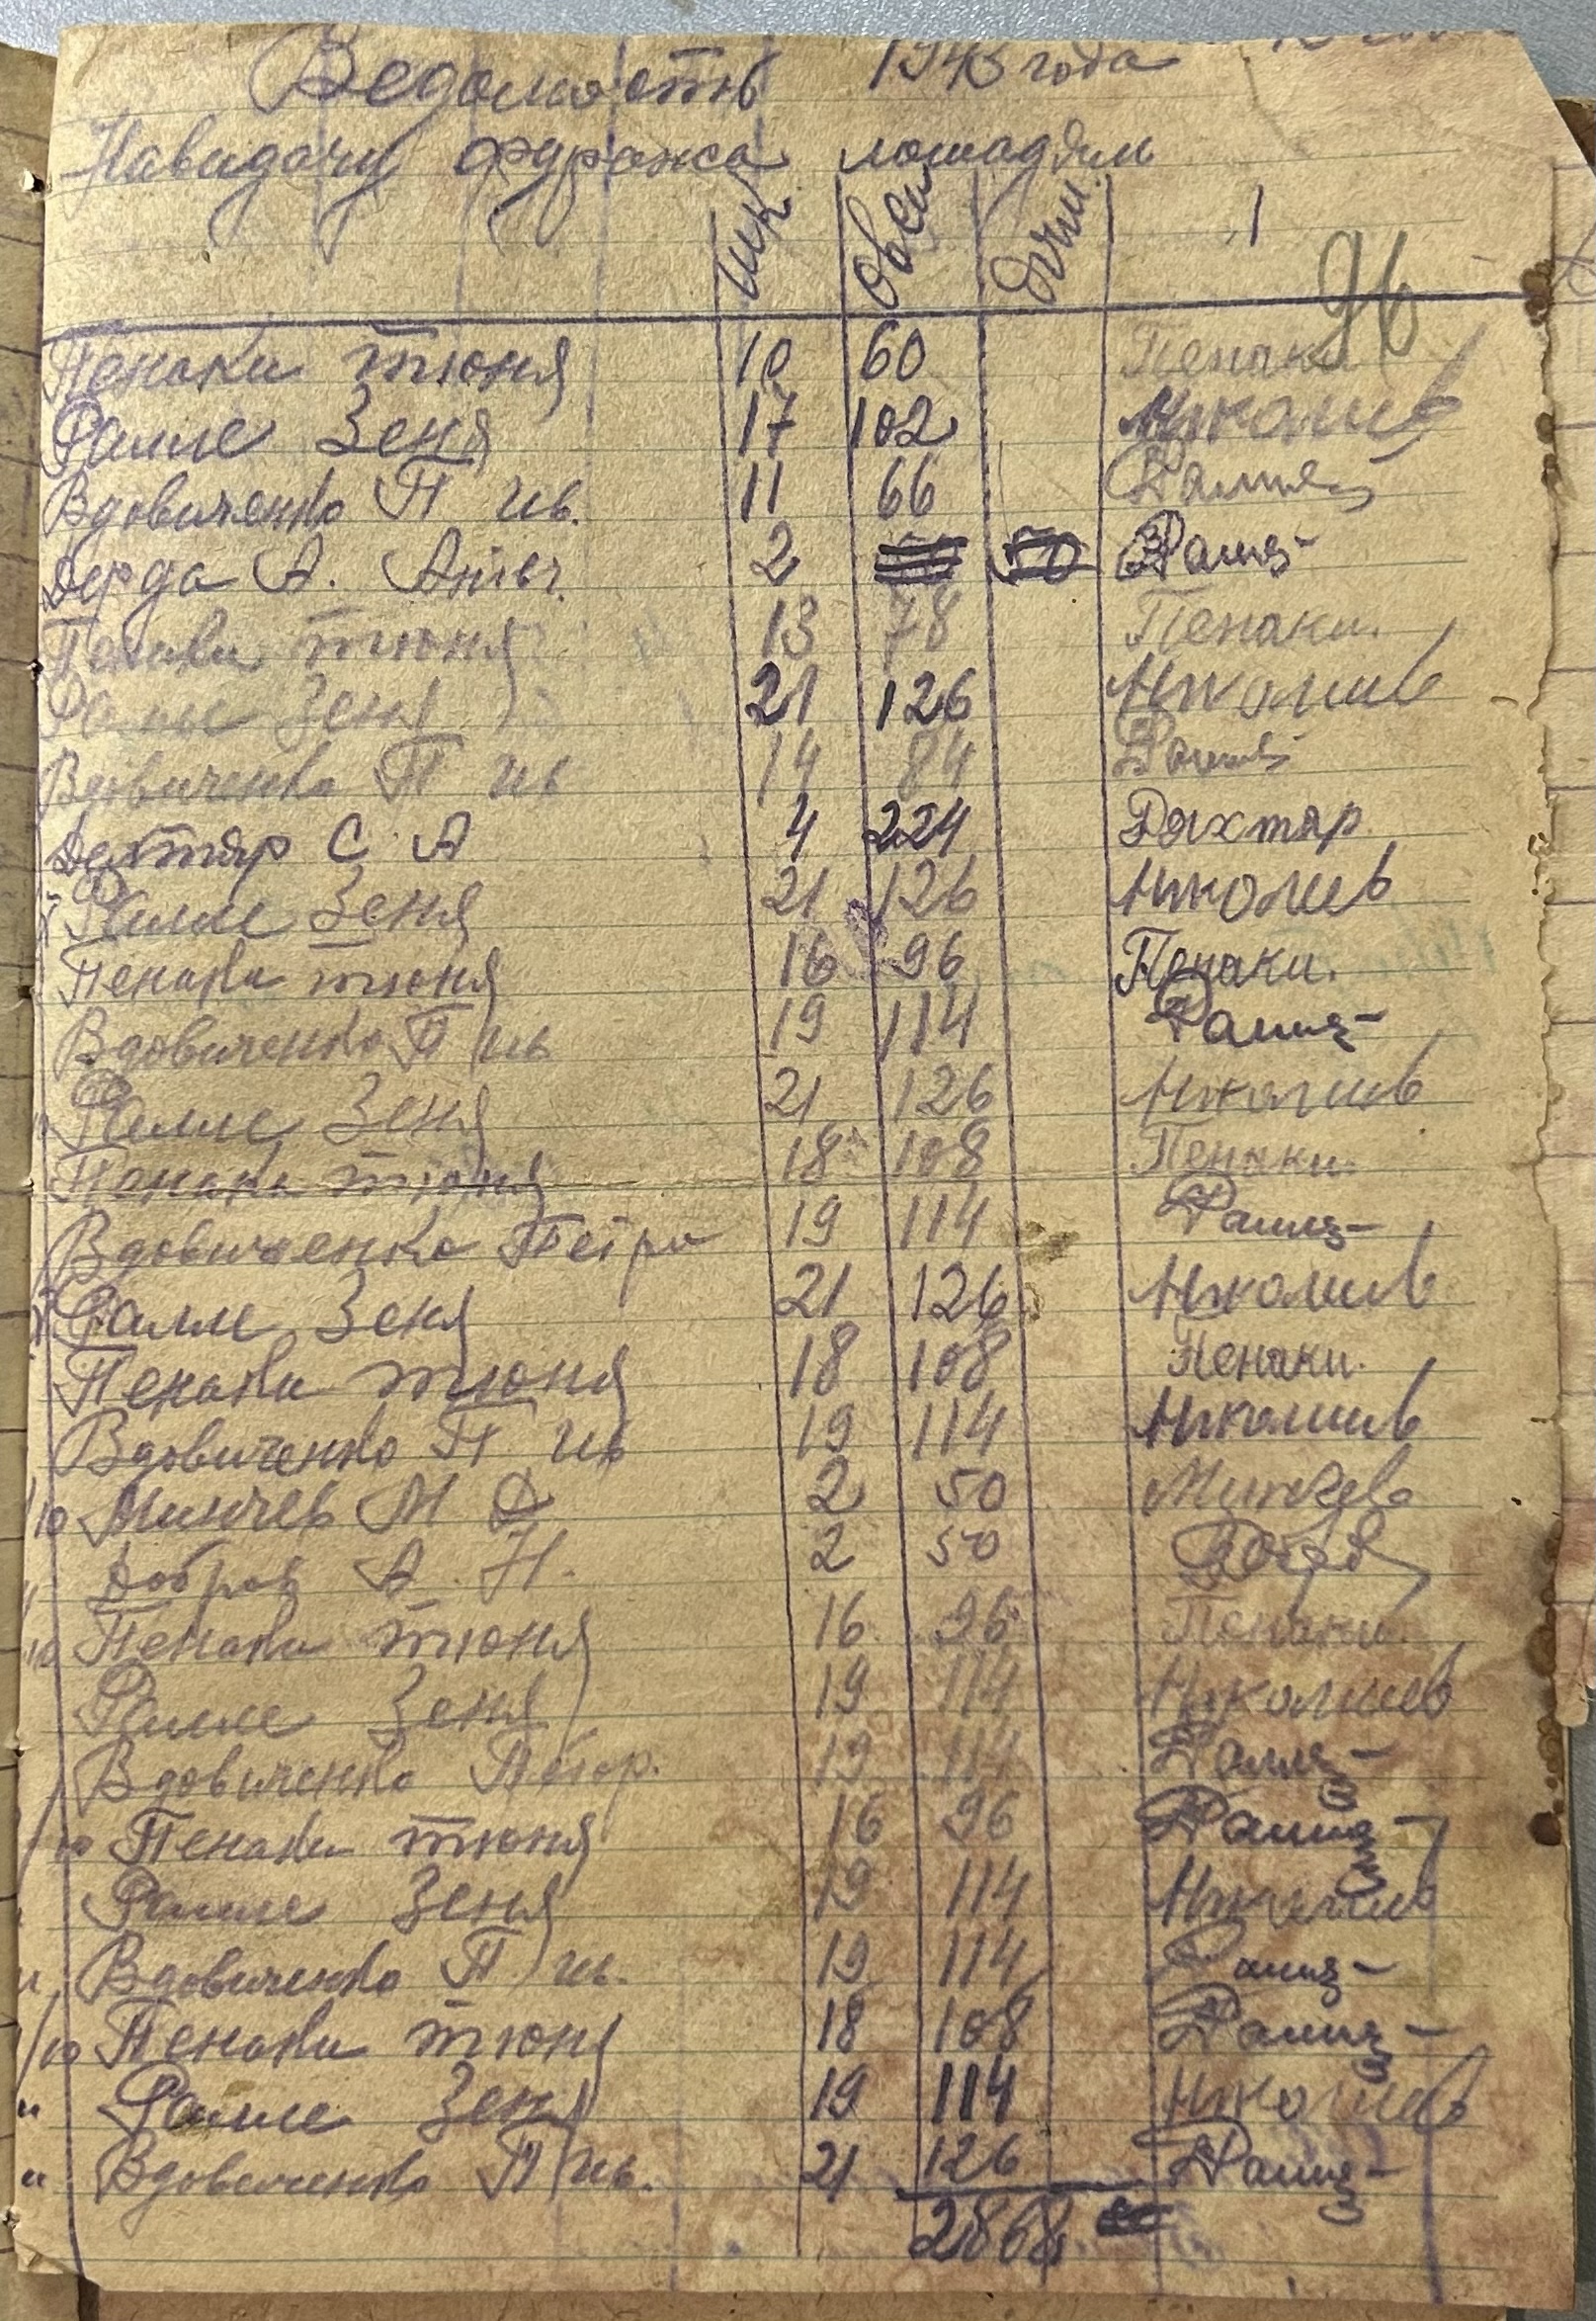 Ведомость 1943 года
Навидачу фуража лошадям
шк Овеса 1
96
Пенаки тюня 10 60 Пенаки
Ралле Зеня 17 102 Николаев
Вдовиченко П ив. 11 66
Дерда А. 2 50
Пенаки тюня 13 78 Пенаки.
Ралле Зеня 21 126 Николаев
Вдовиченко П ив 14 84
Дехтяр С. А 4 224 Дяхтяр
Ралле Зеня 21 126 Николаев
Пенаки тюня 16 96 Пенаки.
Вдовиченко П ив 19 114
Ралле Зеня 21 126 Николаев
Пенаки тюня 18 108 Пенаки.
Вдовиченко Петро 19 114
Ралле Зеня 21 126 Николаев
Пенаки тюня 18 108 Пенаки.
Вдовиченко П ив 19 114 Николаев
10 Минчев М Д 2 50 Минчев
" Добров А. Н. 2 50
10 Пенаки тюня 16 96 Пенаки.
Ралле Зеня 19 114 Николаев
Вдовиченко Петр. 19 114
10 Пенаки тюня 16 96
Ралле Зеня 19 114 Николаев
" Вдовиченко П ив. 19 114
/10 Пенаки тюня 18 108
" Ралле Зеня 19 114 Николаев
" Вдовиченко П ив. 21 126
2868